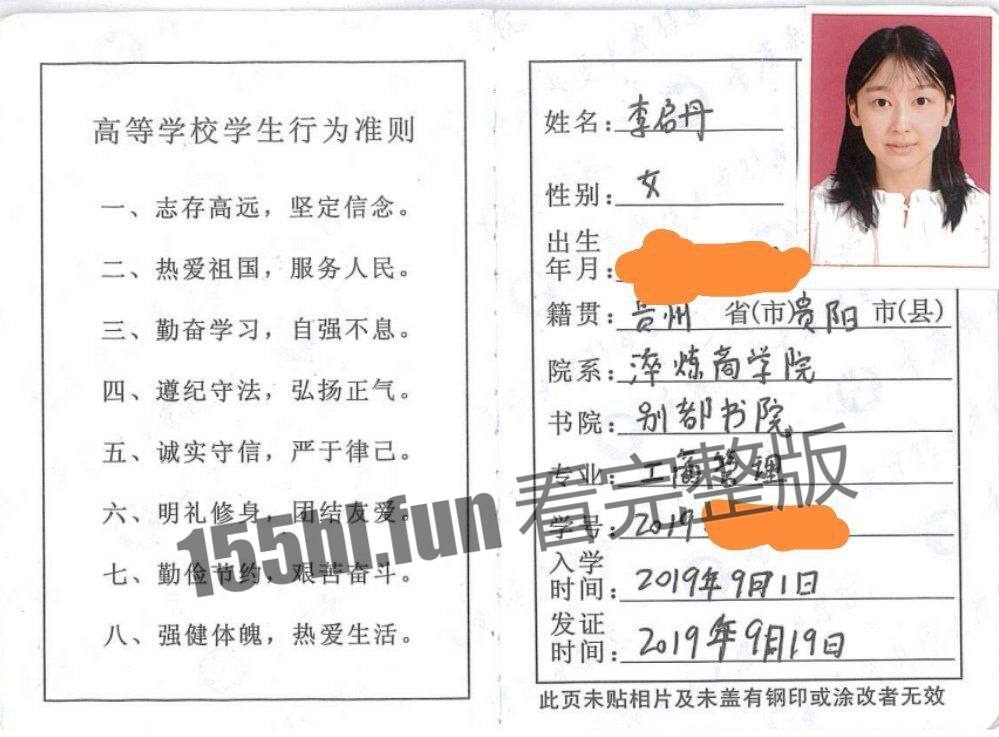 高等学校学生行为准则
一、志存高远，坚定信念。
二、热爱祖国，服务人民。
三、勤奋学习，自强不息。
四、遵纪守法，弘扬正气。
五、诚实守信，严于律己。
六、明礼修身，团结友爱。
七、勤俭节约，艰苦奋斗。
八、强健体魄，热爱生活。
姓名：李启丹
性别：女
出生
年月：
籍贯：贵州 省(市)贵阳 市(县)
院系：淬炼商学院
书院：别都书院
专业：工商管理
学号：2019
入学
时间：2019年9月1日
发证
时间：2019年9月19日
此页未贴相片及未盖有钢印或涂改者无效
155hl.fun 看完整版